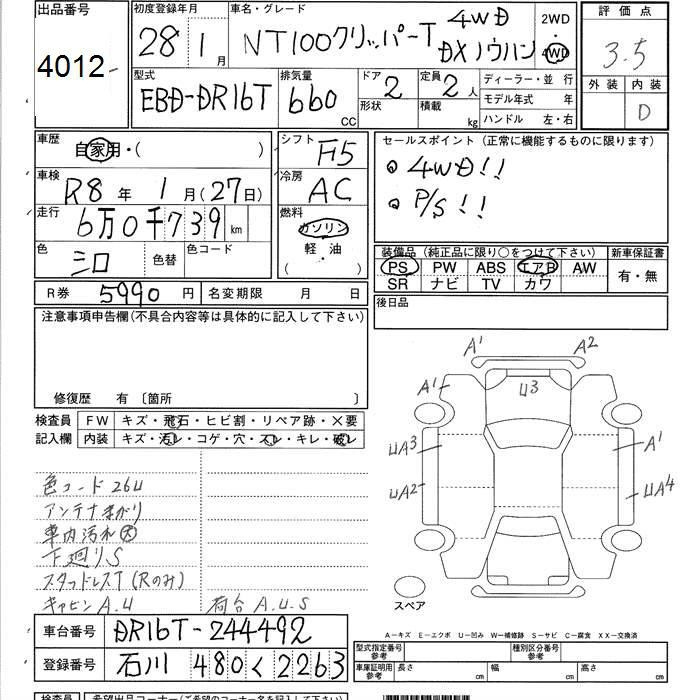 出品番号 4012
初度登録年月 28 1月
車名・グレード NT100クリッパーT 4WD DXノウハン
2WD・4WD
評価点 3.5
外装 内装 D
型式 EBD-DR16T
排気量 660 CC
ドア 2 形状
定員 2人 積載 kg
ディーラー・並行
モデル年式 年
ハンドル 左・右
車歴 自家用・( )
シフト F5
車検 R8年 1月(27日)
冷房 AC
走行 6万0千739km
燃料 ガソリン 軽・油 ( )
色 シロ 色替 色コード
R券 5990円 名変期限 月 日
セールスポイント (正常に機能するものに限ります)
◎ 4WD!!
◎ P/S!!
装備品 (純正品に限り○をつけて下さい)
PS PW ABS エアB AW
SR ナビ TV カワ
新車保証書 有・無
後日品
注意事項申告欄(不具合内容等は具体的に記入して下さい)
修復歴 有 〔箇所 〕
検査員記入欄
FW キズ・飛石・ヒビ割・リペア跡・×要
内装 キズ・汚レ・コゲ・穴・スレ・キレ・破レ
色コード 26U
アンテナまがり
車内汚れ大
下廻りS
スタッドレスT (Rのみ)
キャビン A.U
荷台 A.U.S
A1 A2
A1 U3
UA3 A1
UA2 UA4
スペア
A-キズ E-エクボ U-凹み W-補修跡 S-サビ C-腐食 XX-交換済
車台番号 DR16T-244492
登録番号 石川 480 く 2263
型式指定番号 参考
種別区分番号 参考
車庫証明用 参考 長さ cm 幅 cm 高さ cm
検査員 希望出品コーナー(ご希望のコーナー名を記入して下さい)